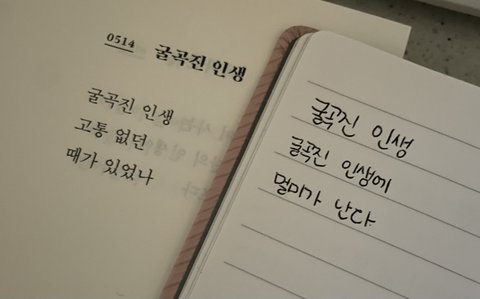 0514 굴곡진 인생
굴곡진 인생
고통 없던
때가 있었나
굴곡진 인생
굴곡진 인생에
멀미가 난다.